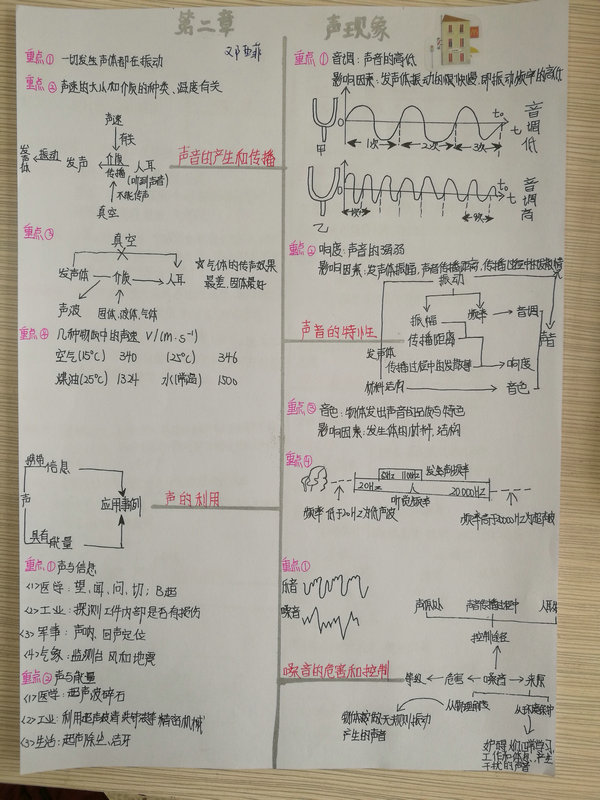 第二章 声现象
邓亚菲
重点① 一切发生声体都在振动
重点② 声速的大小和介质的种类、温度有关
声速
有关
发声体
振动
发声
介质
传播
人耳
(听到声音)
不能传声
真空
声音的产生和传播
重点③
真空
发声体
介质
人耳
声波
固体、液体、气体
☆气体的传声效果
最差,固体最好
重点④ 几种物质中的声速 V/(m·s⁻¹)
空气(15℃) 340 (25℃) 346
煤油(25℃) 1324 水(常温) 1500
携带
信息
声
应用事例
具有
能量
声的利用
重点① 声与信息
<1>医学: 望、闻、问、切; B超
<2>工业: 探测工件内部是否有损伤
<3>军事: 声呐、回声定位
<4>气象: 监测台风和地震
重点② 声与能量
<1>医学: 超声波碎石
<2>工业: 利用超声波清洗钟表等精密机械
<3>生活: 超声除尘、洁牙
重点① 音调: 声音的高低
影响因素: 发声体振动的快慢,即振动频率的高低
甲
0
t₀
t
1次
2次
3次
音调低
乙
0
t₀
t
1次
9次
音调高
重点② 响度: 声音的强弱
影响因素: 发声体振幅,声音传播距离,传播过程中的发散情况
振动
振幅
频率
音调
传播距离
发声体
传播过程中的发散等
响度
声音
材料结构
音色
声音的特性
重点③ 音色: 物体发出声音的品质与特色
影响因素: 发生体的材料、结构
重点④
85Hz 1100Hz
发声频率
20Hz 人 20000HZ
听觉频率
频率低于20HZ为次声波
频率高于20000HZ为超声波
重点①
乐音
噪音
声源处
声音传播过程中
人耳
控制途径
等级
危害
噪音
来源
从物理角度
从环境保护
物体做无规则振动
产生的声音
妨碍人们正常学习、
工作和休息,产生
干扰的声音
噪音的危害和控制